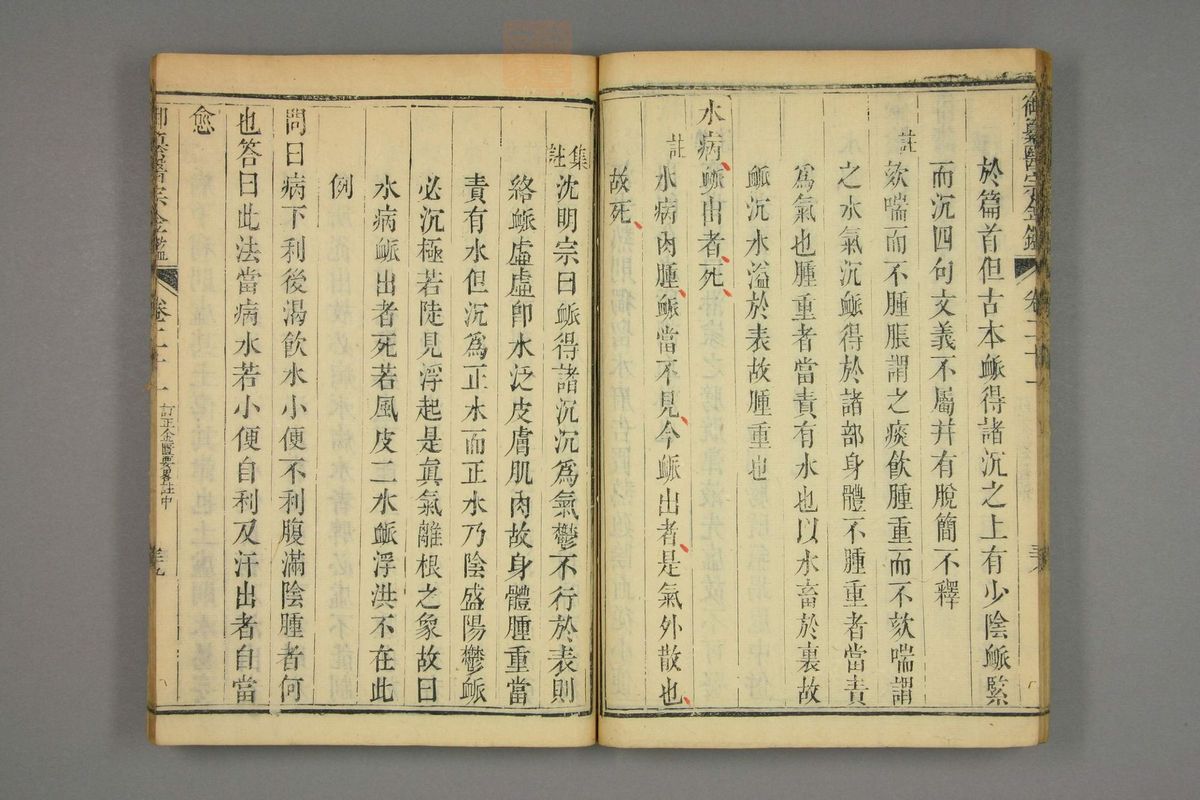 御纂醫宗金鑑 卷二十一
於篇首但古本脈得諸沉之上有少陰脈緊
而沉四句文義不屬并有脫簡不釋
註 欬喘而不腫脹謂之痰飲腫重而不欬喘謂
之水氣沉脈得於諸部身體不腫重者當責
爲氣也腫重者當責有水也以水畜於裏故
脈沉水溢於表故腫重也
水病脈出者死
註 水病肉腫脈當不見今脈出者是氣外散也
故死
集註 沈明宗曰脈得諸沉沉爲氣鬱不行於表則
絡脈虛虛卽水泛皮膚肌肉故身體腫重當
責有水但沉爲正水而正水乃陰盛陽鬱脈
必沉極若陡見浮起是眞氣離根之象故曰
水病脈出者死若風皮二水脈浮洪不在此
例
問曰病下利後渴飲水小便不利腹滿陰腫者何
也答曰此法當病水若小便自利及汗出者自當
愈
御纂醫宗金鑑 卷二十一 訂正金匱要畧註中